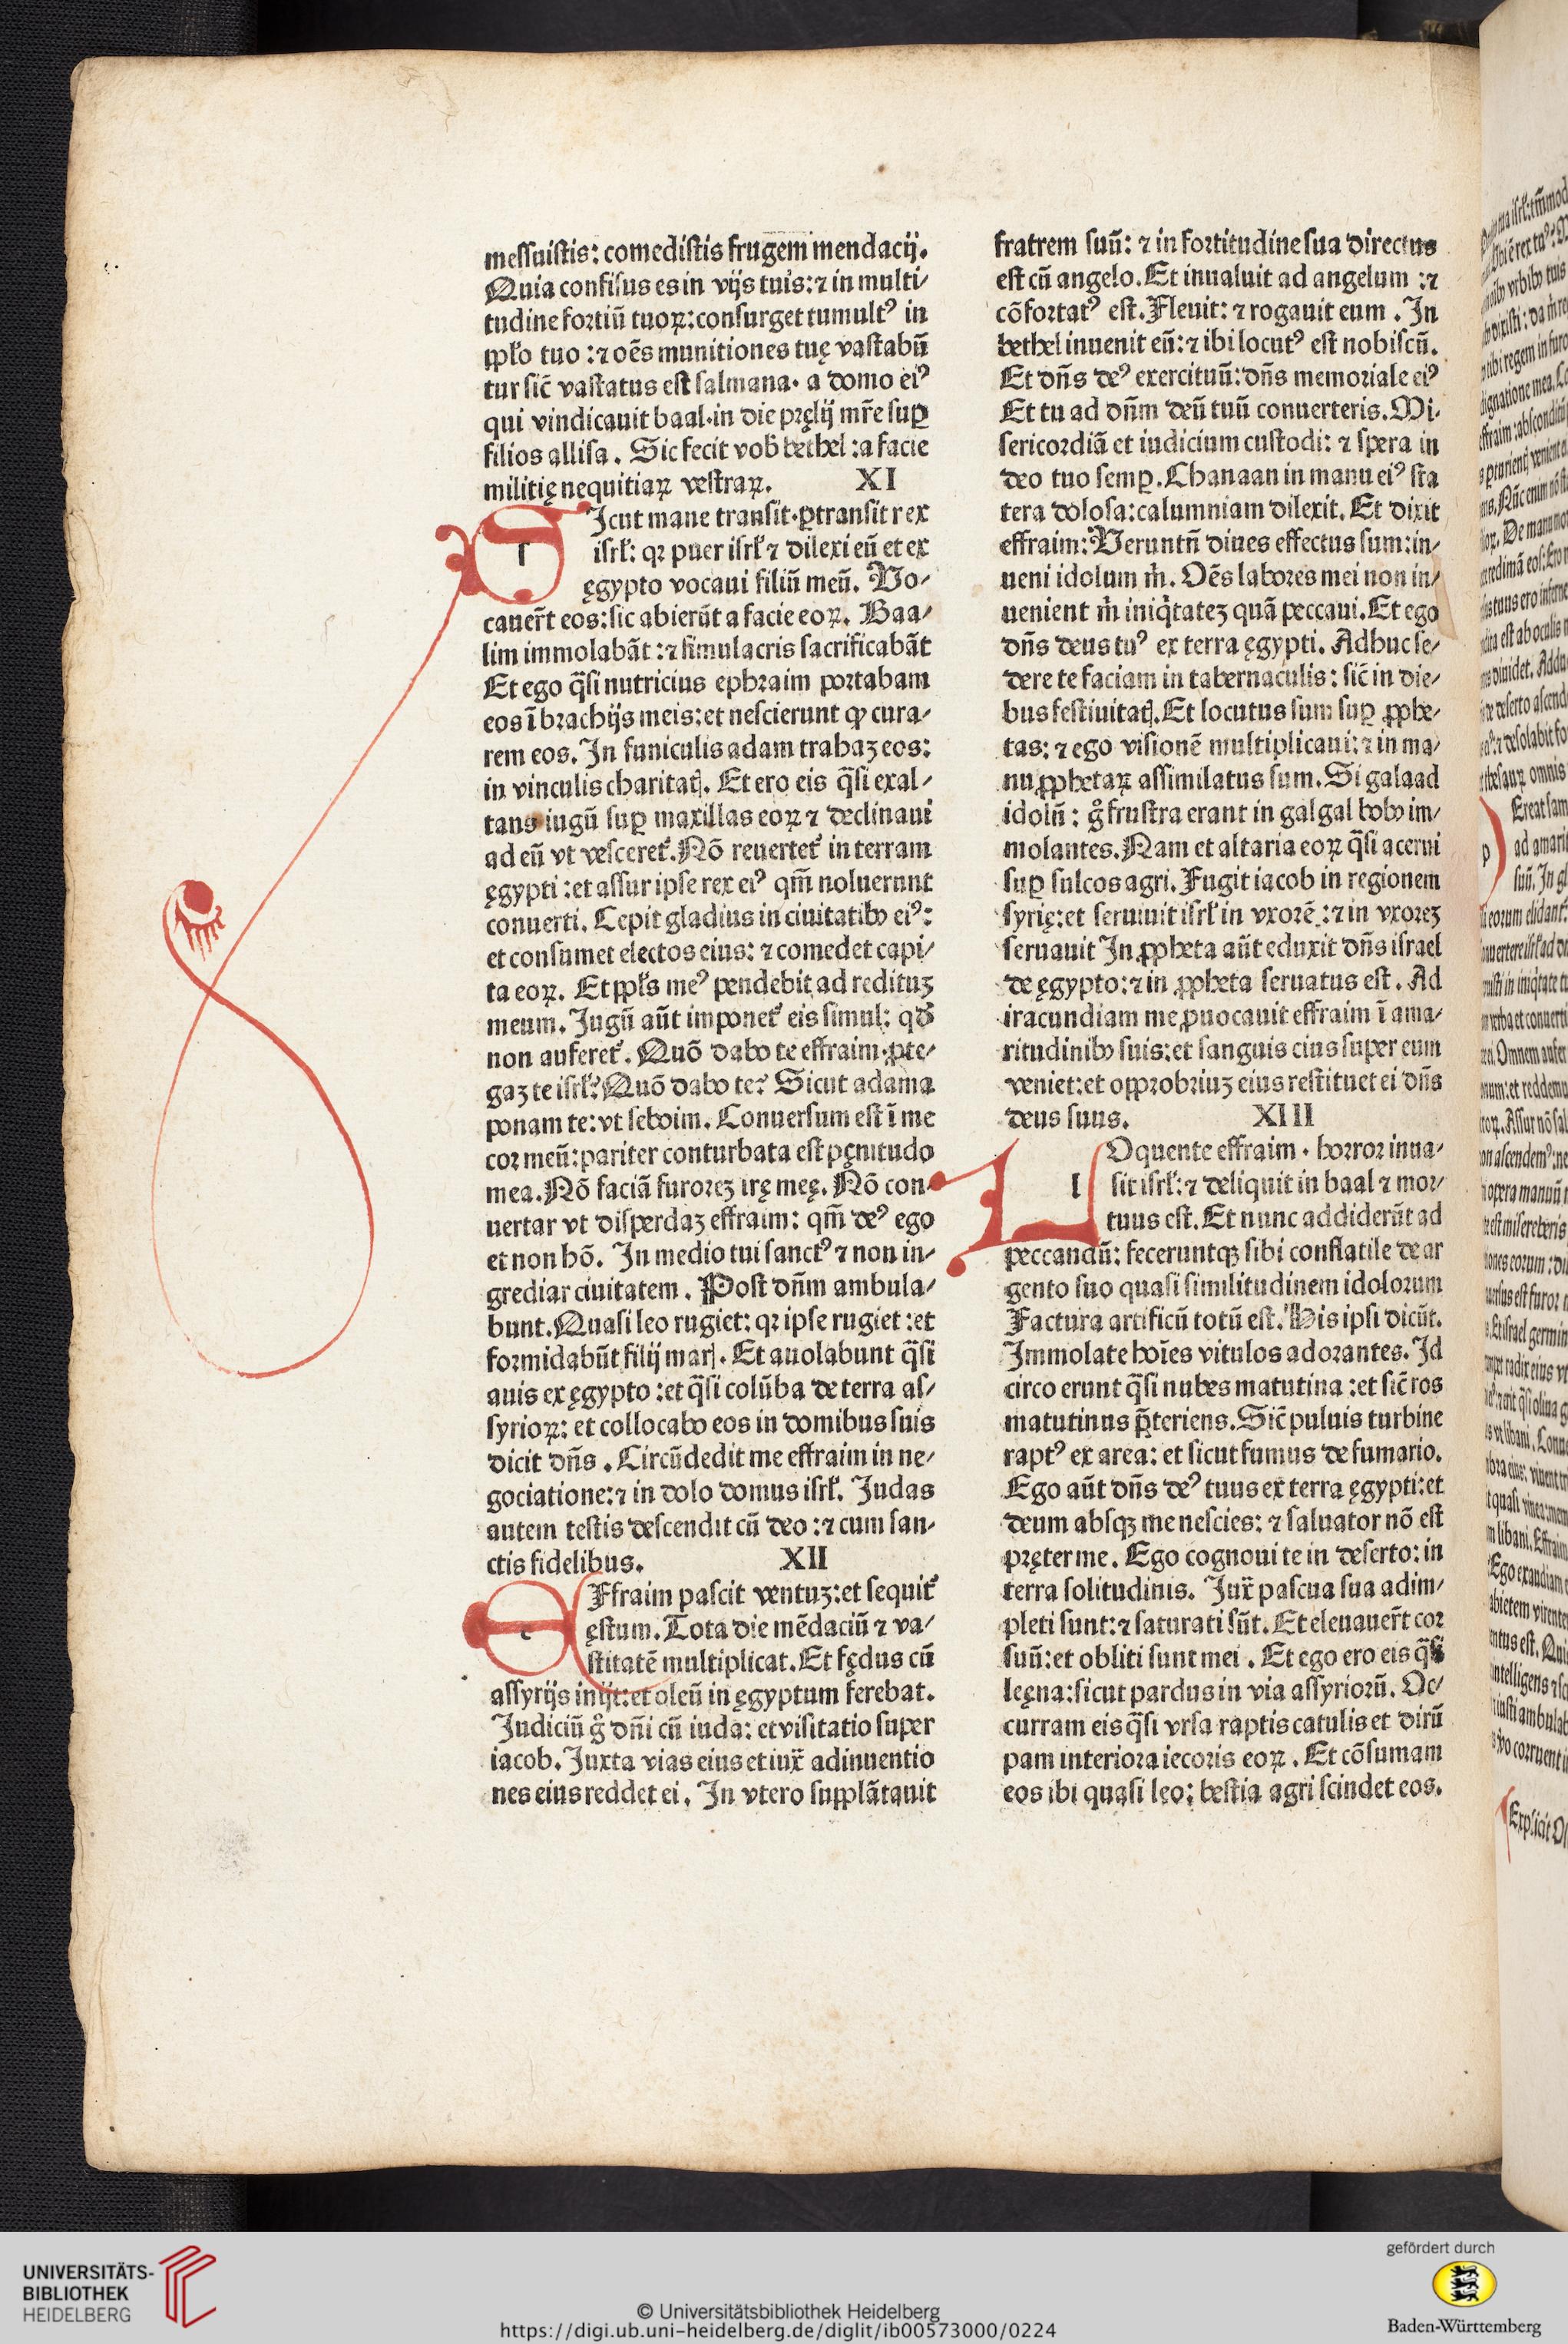 messuistis: comedistis frugem mendacij.
Quia confisus es in vijs tuis: ⁊ in multi/
tudine fortiū tuoꝝ: consurget tumultꝰ in
ppl̓o tuo : ⁊ oēs munitiones tuę vastabū
tur sic̄ vastatus est salmana· a domo eiꝰ
qui vindicauit baal· in die pręlij mr̄e suꝑ
filios allisa. Sic fecit vob̄ bethel : a facie
militię nequitiaꝝ vestraꝝ. XI
SIcut mane transit· ꝑtransit rex
isrl̓: qꝛ puer isrl̓ ⁊ dilexi eū et ex
ęgypto vocaui filiū meū. Vo/
cauer̄t eos: sic abierūt a facie eoꝝ. Baa/
lim immolabāt : ⁊ simulacris sacrificabāt
Et ego q̄si nutricius ephraim portabam
eos ī brachijs meis: et nescierunt ꝙ cura/
rem eos. In funiculis adam trahaꝫ eos:
in vinculis charitatꝭ. Et ero eis q̄si exal/
tans iugū suꝑ maxillas eoꝝ ⁊ declinaui
ad eū vt vesceret᷑. Nō reuertet᷑ in terram
ęgypti : et assur ipse rex eiꝰ qm̄ noluerunt
conuerti. Cepit gladius in ciuitatibꝰ eiꝰ:
et consumet electos eius: ⁊ comedet capi/
ta eoꝝ. Et ppl̓s meꝰ pendebit ad redituꝫ
meum. Jugū aūt imponet᷑ eis simul: qd̄
non auferet᷑. Quō dabo te effraim· ꝓte/
gaꝫ te isrl̓? Quō dabo te? Sicut adama
ponam te: vt seboim. Conuersum est ī me
cor meū: pariter conturbata est pęnitudo
mea. Nō faciā furoreꝫ irę meę. Nō con/
uertar vt disperdaꝫ effraim: qm̄ deꝰ ego
et non hō. In medio tui sanctꝰ ⁊ non in/
grediar ciuitatem. Post dn̄m ambula/
bunt. Quasi leo rugiet: qꝛ ipse rugiet : et
formidabūt filij marꝭ. Et auolabunt q̄si
auis ex ęgypto : et q̄si colūba de terra as/
syrioꝝ: et collocabo eos in domibus suis
dicit dn̄s. Circūdedit me effraim in ne/
gociatione: ⁊ in dolo domus isrl̓. Judas
autem testis descendit cū deo : ⁊ cum san/
ctis fidelibus. XII
EFfraim pascit ventuꝫ: et sequit᷑
ęstum. Tota die mēdaciū ⁊ va/
stitatē multiplicat. Et fędus cū
assyrijs inijt: et oleū in ęgyptum ferebat.
Judiciū g̊ dn̄i cū iuda: et visitatio super
iacob. Juxta vias eius et iux̄ adinuentio
nes eius reddet ei. In vtero supplātauit
fratrem suū: ⁊ in fortitudine sua directus
est cū angelo. Et inualuit ad angelum : ⁊
cōfortatꝰ est. Fleuit: ⁊ rogauit eum. In
bethel inuenit eū: ⁊ ibi locutꝰ est nobiscū.
Et dn̄s deꝰ exercituū: dn̄s memoriale eiꝰ
Et tu ad dn̄m deū tuū conuerteris. Mi/
sericordiā et iudicium custodi: ⁊ spera in
deo tuo semꝑ. Chanaan in manu eiꝰ sta
tera dolosa: calumniam dilexit. Et dixit
effraim: Veruntn̄ diues effectus sum: in/
ueni idolum m̄. Oēs labores mei non in/
uenient m̄ iniq̇tateꝫ quā peccaui. Et ego
dn̄s deus tuꝰ ex terra ęgypti. Adhuc se/
dere te faciam in tabernaculis : sic̄ in die/
bus festiuitatꝭ. Et locutus sum suꝑ ꝓphe/
tas: ⁊ ego visionē multiplicaui: ⁊ in ma/
nu ꝓphetaꝝ assimilatus sum. Si galaad
idolū : g̊ frustra erant in galgal bobꝰ im/
molantes. Nam et altaria eoꝝ q̄si acerui
suꝑ sulcos agri. Fugit iacob in regionem
syrię: et seruiuit isrl̓ in vxorē : ⁊ in vxoreꝫ
seruauit In ꝓpheta aūt eduxit dn̄s israel
de ęgypto: ⁊ in ꝓpheta seruatus est. Ad
iracundiam me ꝓuocauit effraim ī ama/
ritudinibꝰ suis: et sanguis eius super eum
veniet: et opprobriuꝫ eius restituet ei dn̄s
deus suus. XIII
LOquente effraim · horror inua/
sit isrl̓: ⁊ deliquit in baal ⁊ mor/
tuus est. Et nunc addiderūt ad
peccandū: feceruntqꝫ sibi conflatile de ar
gento suo quasi similitudinem idolorum
Factura artificū totū est. His ipsi dicūt.
Immolate hoīes vitulos adorantes. Id
circo erunt q̄si nubes matutina : et sic̄ ros
matutinus p̄teriens. Sic̄ puluis turbine
raptꝰ ex area: et sicut fumus de fumario.
Ego aūt dn̄s deꝰ tuus ex terra ęgypti: et
deum absqꝫ me nescies: ⁊ saluator nō est
pręter me. Ego cognoui te in deserto: in
terra solitudinis. Jux̄ pascua sua adim/
pleti sunt: ⁊ saturati sūt. Et eleuauer̄t cor
suū: et obliti sunt mei. Et ego ero eis q̄si
leęna: sicut pardus in via assyriorū. Oc/
curram eis q̄si vrsa raptis catulis et dirū
pam interiora iecoris eoꝝ. Et cōsumam
eos ibi quasi leo: bestia agri scindet eos.
UNIVERSITÄTS-
BIBLIOTHEK
HEIDELBERG
© Universitätsbibliothek Heidelberg
https://digi.ub.uni-heidelberg.de/diglit/ib00573000/0224
gefördert durch
Baden-Württemberg